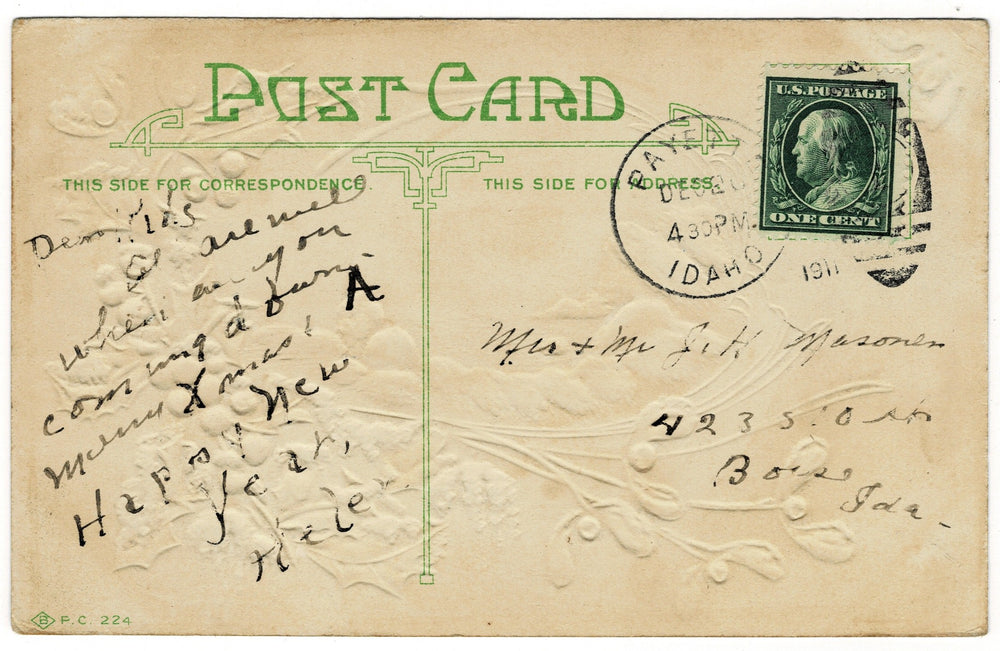 POST CARD
THIS SIDE FOR CORRESPONDENCE.
THIS SIDE FOR ADDRESS.
U.S. POSTAGE
ONE CENT
PAYE
DEC
4 30 PM.
IDAHO
1911
Dear Kids
all are well
when are you
coming down.
Merry Xmas, A
Happy New
Year,
Helen
Mrs + Mr J. H Masoner
423 S.
Boise
Ida-
B P.C. 224